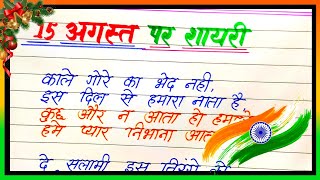 15 अगस्त पर शायरी
काले गोरे का भेद नही,
इस दिल से हमारा नाता है,
कुछ और न आता हो
हमे प्यार निभाना
दे सलामी इस तिरंगे को